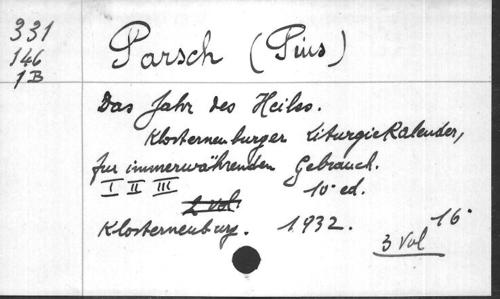 331
146
1B
Parsch (Pius)
Das Jahr des Heils.
Klosterneuburger Liturgiekalender,
für immerwährenden Gebrauch.
I II III 10e ed.
2 vol.
Klosterneuburg. 1932. 16°
3 Vol